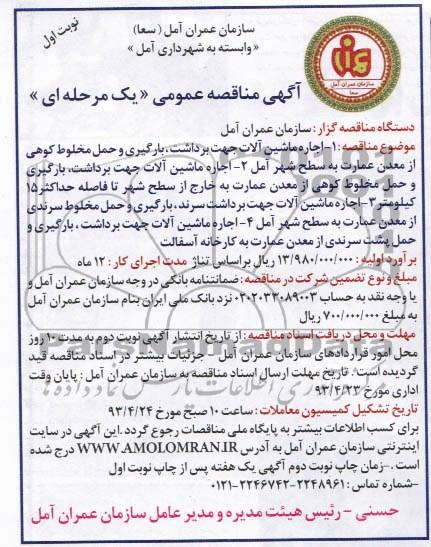 نوبت اول
سازمان عمران آمل (سعا)
«وابسته به شهرداری آمل»
سازمان عمران آمل
سعا
آگهی مناقصه عمومی «یک مرحله ای»
دستگاه مناقصه گزار: سازمان عمران آمل
موضوع مناقصه: ۱-اجاره ماشین آلات جهت برداشت، بارگیری و حمل مخلوط کوهی
از معدن عمارت به سطح شهر آمل ۲- اجاره ماشین آلات جهت برداشت، بارگیری
و حمل مخلوط کوهی از معدن عمارت به خارج از سطح شهر تا فاصله حداکثر ۱۵
کیلومتر ۳-اجاره ماشین آلات جهت برداشت سرند، بارگیری و حمل مخلوط سرندی
از معدن عمارت به سطح شهر آمل ۴-اجاره ماشین آلات جهت برداشت، بارگیری و
حمل پشت سرندی از معدن عمارت به کارخانه آسفالت
برآورد اولیه: ۱۳/۹۸۰/۰۰۰/۰۰۰ ریال براساس تناژ مدت اجرای کار: ۱۲ ماه
مبلغ و نوع تضمین شرکت در مناقصه: ضمانتنامه بانکی در وجه سازمان عمران آمل و
یا وجه نقد به حساب ۰۳۰۲۰۳۳۰۸۹۰۰۳ نزد بانک ملی ایران بنام سازمان عمران آمل
به مبلغ ۷۰۰/۰۰۰/۰۰۰ ریال
مهلت و محل دریافت اسناد مناقصه: از تاریخ انتشار آگهی نوبت دوم به مدت ۱۰ روز
محل امور قراردادهای سازمان عمران آمل - جزئیات بیشتر در اسناد مناقصه قید
گردیده است. تاریخ مهلت ارسال اسناد مناقصه به سازمان عمران آمل: پایان وقت
اداری مورخ ۹۳/۴/۲۳
تاریخ تشکیل کمیسیون معاملات: ساعت ۱۰ صبح مورخ ۹۳/۴/۲۴
برای کسب اطلاعات بیشتر به پایگاه ملی مناقصات رجوع گردد. این آگهی در سایت
اینترنتی سازمان عمران آمل به آدرس WWW.AMOLOMRAN.IR درج شده
است. -زمان چاپ نوبت دوم آگهی یک هفته پس از چاپ نوبت اول
-شماره تماس: ۲۲۴۸۹۶۱-۲۲۴۶۷۴۲-۰۱۲۱
حسنی - رئیس هیئت مدیره و مدیر عامل سازمان عمران آمل